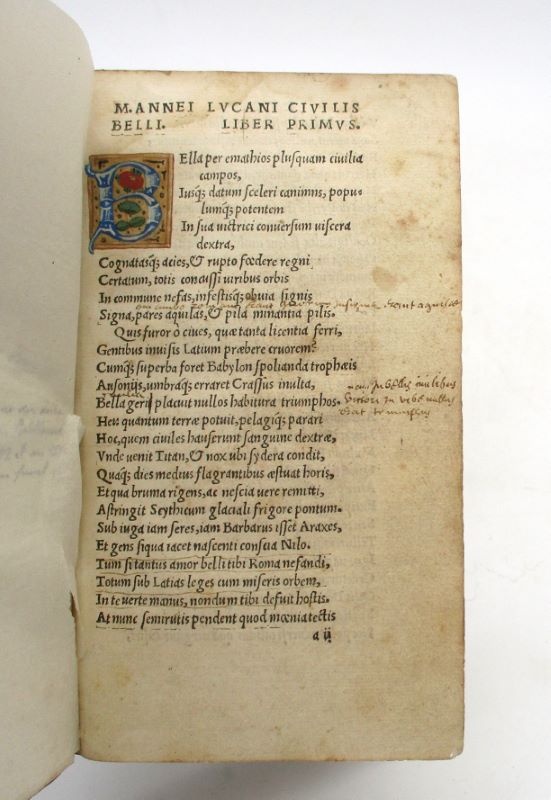 M. ANNEI LVCANI CIVILIS
BELLI. LIBER PRIMVS.
BElla per emathios plusquam ciuilia
campos,
Iusq; datum sceleri canimus, popu-
lumq; potentem
In sua uictrici conuersum uiscera
dextra,
Cognatasq; acies, & rupto fœdere regni
Certatum, totis concussi uiribus orbis
In commune nefas, infestisq; obuia signis
Signa, pares aquilas, & pila minantia pilis.
Quis furor ô ciues, quæ tanta licentia ferri,
Gentibus inuisis Latium præbere cruorem?
Cumq; superba foret Babylon spolianda trophæis
Ausonijs, umbraq; erraret Crassus inulta,
Bella geri placuit nullos habitura triumphos.
Heu quantum terræ potuit, pelagiq; parari
Hoc, quem ciuiles hauserunt sanguine dextræ,
Vnde uenit Titan, & nox ubi sydera condit,
Quaq; dies medius flagrantibus æstuat horis,
Et qua bruma rigens, ac nescia uere remitti,
Astringit Scythicum glaciali frigore pontum.
Sub iuga iam seres, iam Barbarus isset Araxes,
Et gens siqua iacet nascenti conscia Nilo.
Tum si tantus amor belli tibi Roma nefandi,
Totum sub Latias leges cum miseris orbem,
In te uerte manus, nondum tibi defuit hostis.
At nunc semirutis pendent quod mœnia tectis
a ii